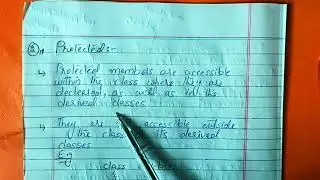 ② Protected:-
↳ Protected members are accessible
within the class where they are
declered, as well as in the
derived classes
↳ They are accessible outside
the class its derived
classes
Eg
class